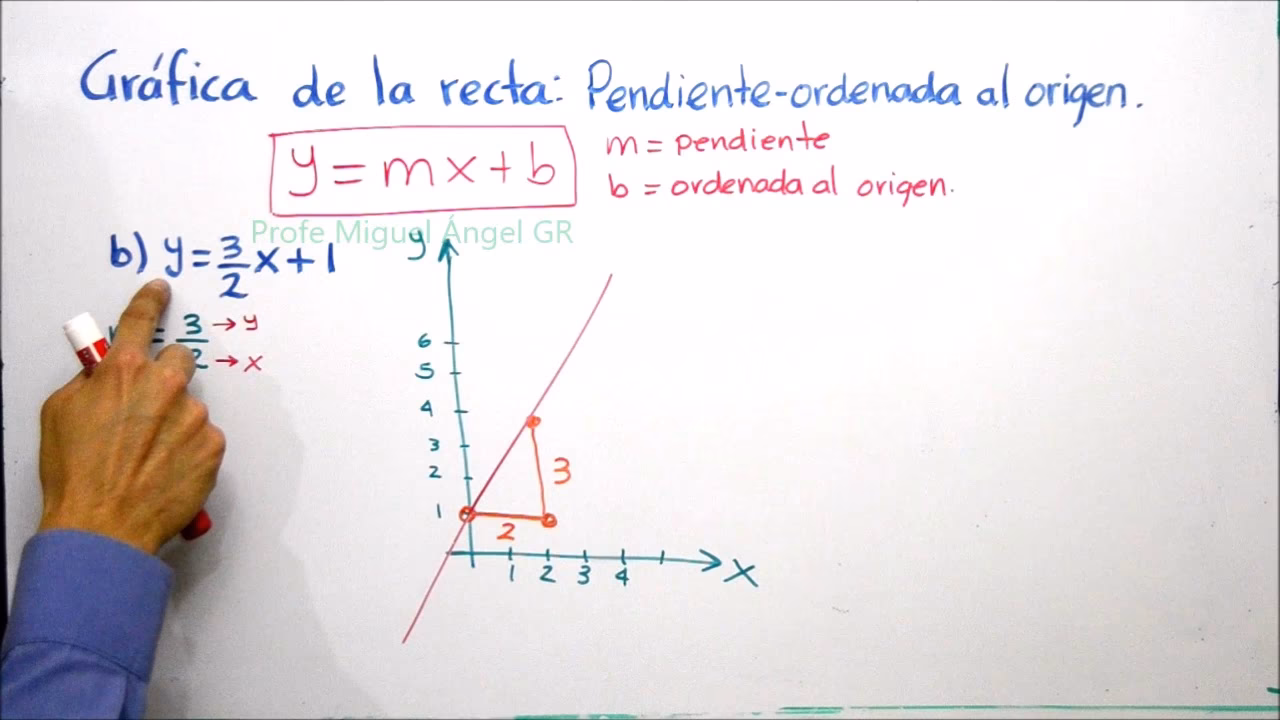 Gráfica de la recta: Pendiente-ordenada al origen.
y = mx + b
m = pendiente
b = ordenada al origen.
Profe Miguel Ángel GR
b) y = 3/2 x + 1
= 3 → y
2 → x
y
6
5
4
3
2
1
3
2
1 2 3 4
x